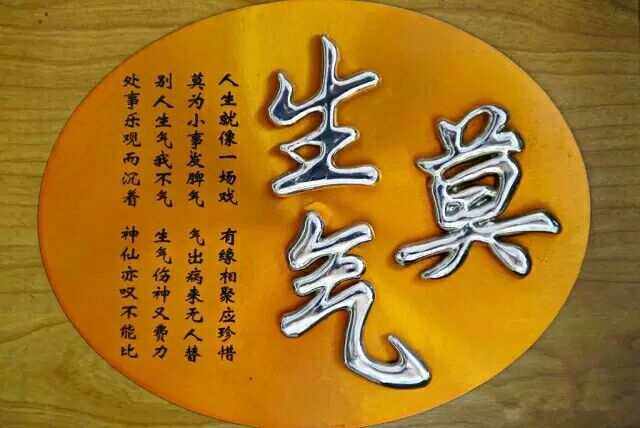 莫
生气
人生就像一场戏 有缘相聚应珍惜
莫为小事发脾气 气出病来无人替
别人生气我不气 生气伤神又费力
处事乐观而沉着 神仙亦叹不能比